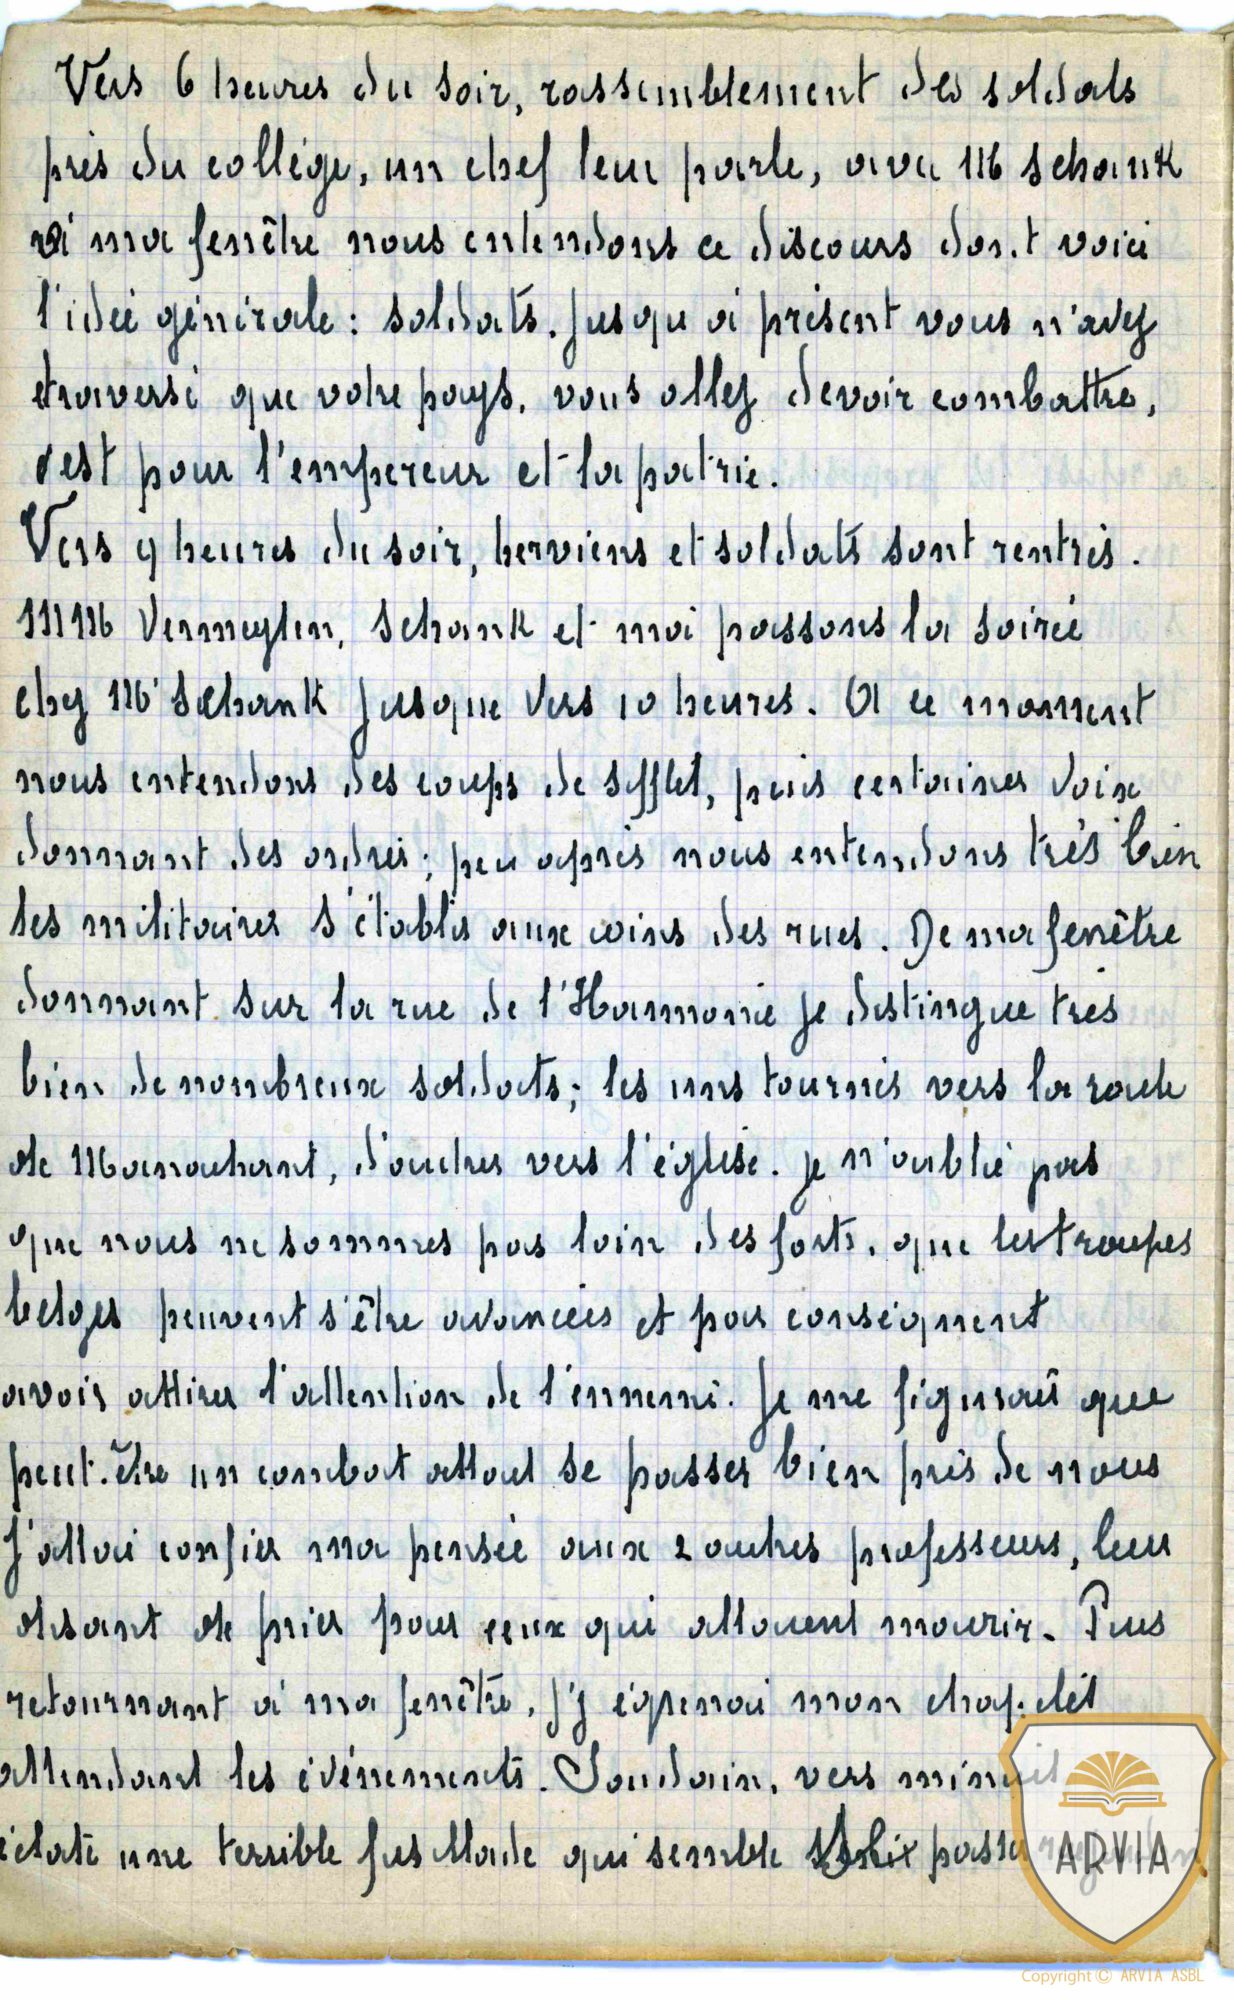 Vers 6 heures du soir, rassemblement des soldats
près du collége, un chef leur parle, avec Mr Schank
à ma fenêtre nous entendons ce discours dont voici
l'idée générale : soldats, jusqu'à présent vous n'avez
traversé que votre pays, vous allez devoir combattre,
c'est pour l'empereur et la patrie.
Vers 9 heures du soir, herviens et soldats sont rentrés.
MMrs Vermeylen, Schank et moi passons la soirée
chez Mr Schank jusque vers 10 heures. A ce moment
nous entendons des coups de sifflet, puis certaines voix
donnant des ordres ; peu après nous entendons très bien
les militaires s'établir aux coins des rues. De ma fenêtre
donnant sur la rue de l'Harmonie je distingue très
bien de nombreux soldats ; les uns tournés vers la route
de Manaihant, d'autres vers l'église. Je n'oublie pas
que nous ne sommes pas loin des forts, que les troupes
belges peuvent s'être avancées et par conséquent
avoir attirer l'attention de l'ennemi. Je me figurais que
peut-être un combat allait se passer bien près de nous
J'allai confier ma pensée aux 2 autres professeurs, leur
disant de prier pour ceux qui allaient mourir. Puis
retournant à ma fenêtre, j'y égrenai mon chapelet
attendant les événements. Soudain, vers minuit
éclate une terrible fusillade qui semble passer
ARVIA
Copyright © ARVIA ASBL